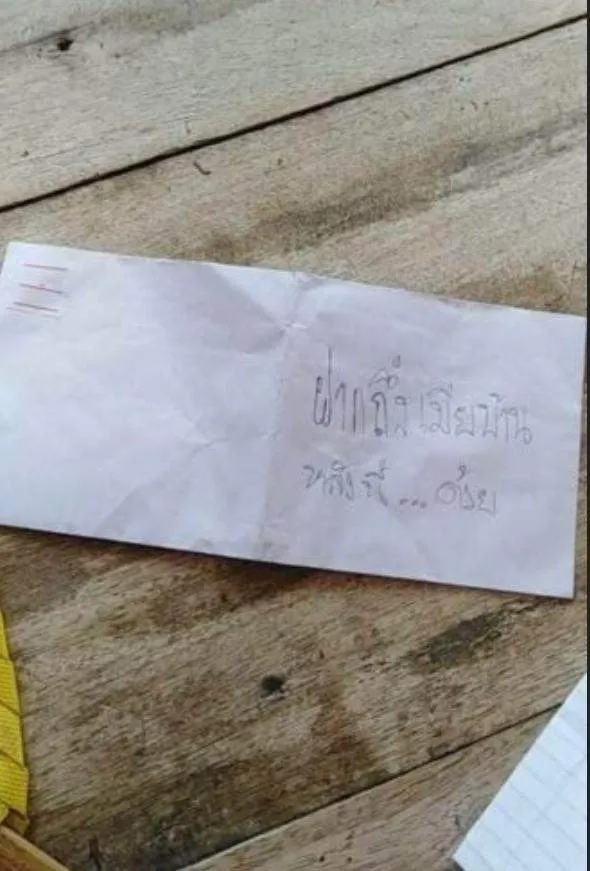 ฝากถึงเมียบ้าน
หลังนี้ ... ด้วย